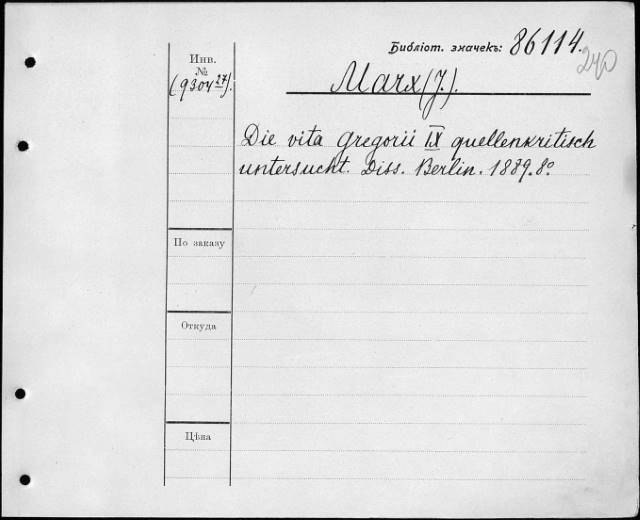 Библіот. значекъ: 86114.
240
Инв.
№
(9304²⁷).
Marx (J.).
Die vita Gregorii IX quellenkritisch
untersucht. Diss. Berlin. 1889. 8º
По заказу
Откуда
Цѣна